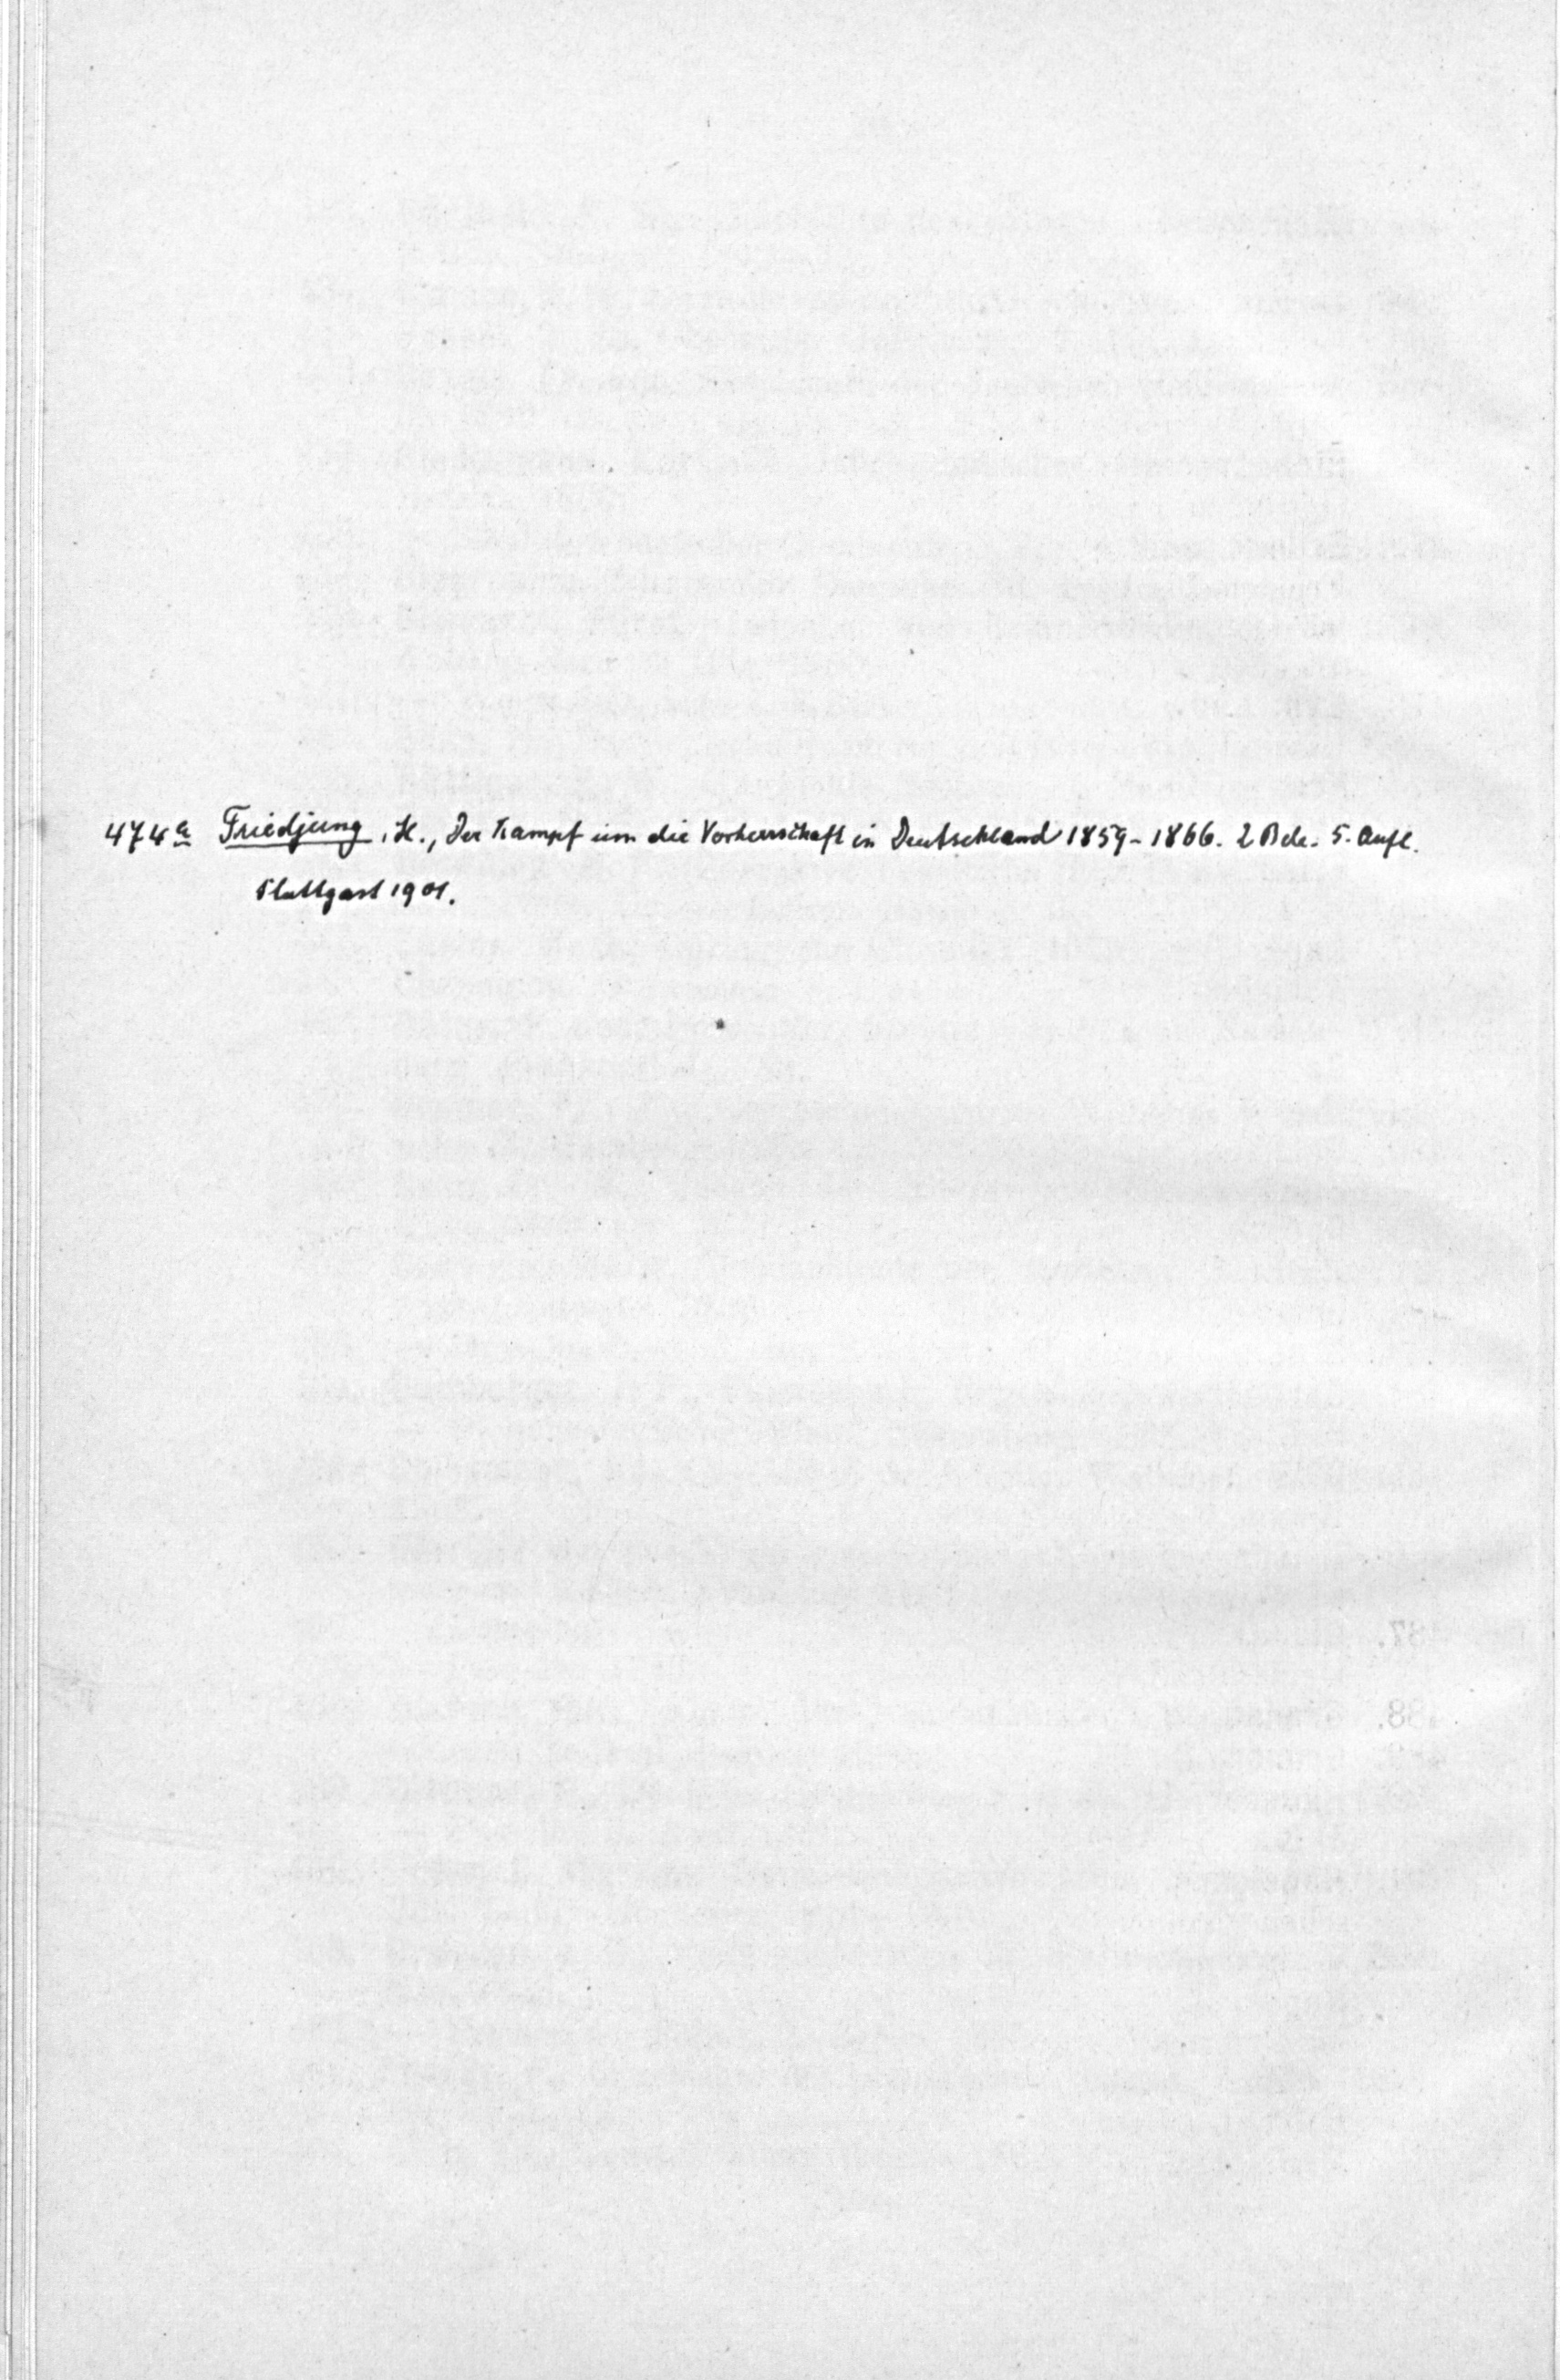 474a Friedjung, H., Der Kampf um die Vorherrschaft in Deutschland 1859-1866. 2 Bde. 5. Aufl.
Stuttgart 1901.